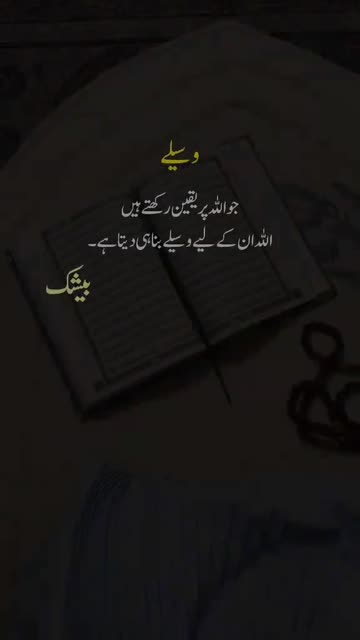 وسیلے
جو اللہ پر یقین رکھتے ہیں
اللہ ان کے لیے وسیلے بنا ہی دیتا ہے۔
بیشک